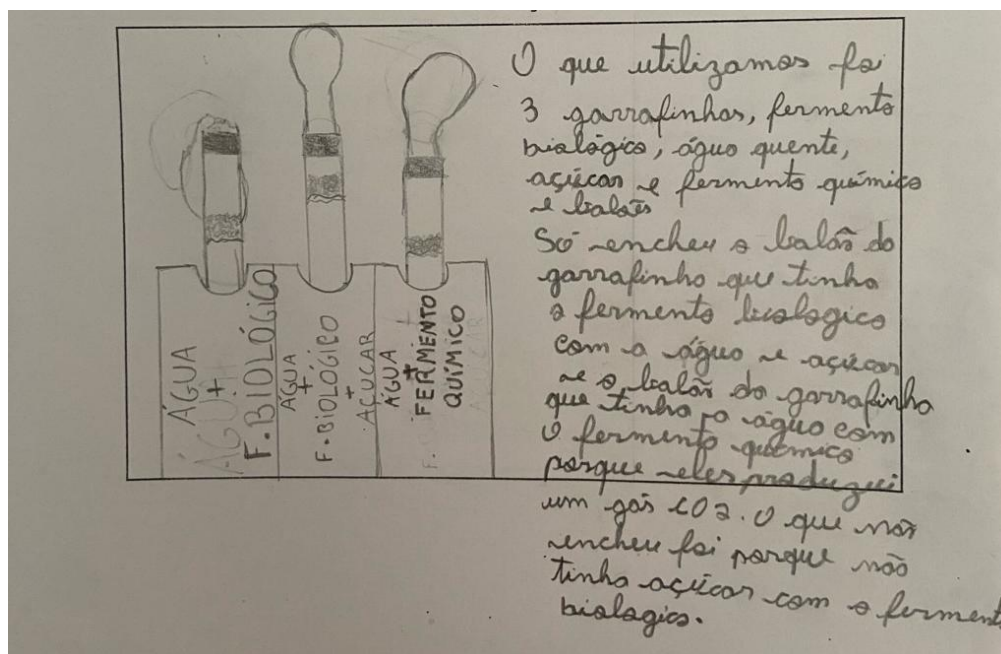 ÁGUA
+
F. BIOLÓGICO
ÁGUA
+
F. BIOLÓGICO
+
AÇUCAR
ÁGUA
+
FERMENTO
QUÍMICO
O que utilizamos foi
3 garrafinhas, fermento
biológico, água quente,
açúcar e fermento químico
e balões
Só encheu o balão da
garrafinha que tinha
o fermento biologico
com a água e açúcar
e o balão da garrafinha
que tinha a água com
O fermento químico
porque eles produzui
um gás CO2. O que não
encheu foi porque não
tinha açúcar com o ferment
biologico.